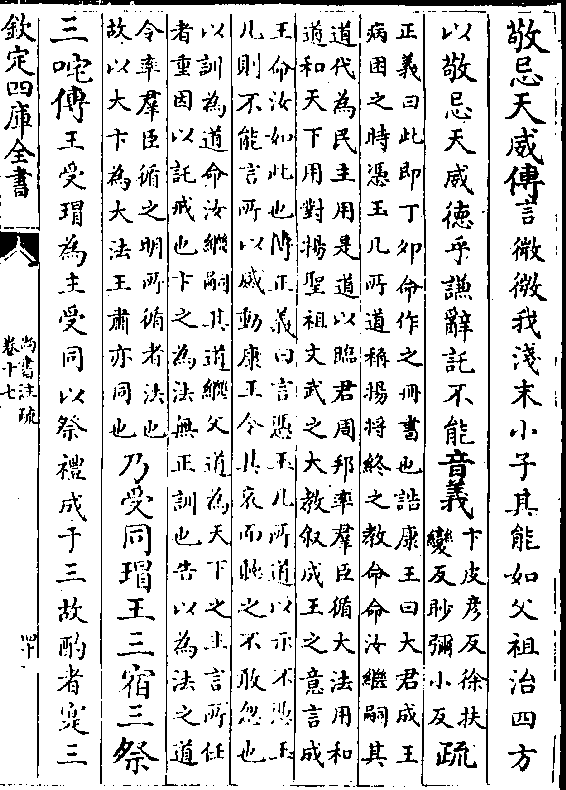 敬忌天威傳言微微我淺末小子其能如父祖治四方
以敬忌天威德乎謙辭託不能音義卞皮彦反徐扶
變反眇彌小反疏
正義曰此即丁卯命作之冊書也誥康王曰大君成王
病困之時憑玉几所道稱揚將終之教命命汝繼嗣其
道代為民主用是道以臨君周邦率羣臣循大法用和
道和天下用對揚聖祖文武之大教叙成王之意言成
王命汝如此也傳正義曰言憑玉几所道以示不憑玉
几則不能言所以感動康王令其哀而聽之不敢忽也
以訓為道命汝繼嗣其道繼父道為天下之主言所任
者重因以託戒也卞之為法無正訓也告以為法之道
令率羣臣循之明所循者法也
故以大卞為大法王肅亦同也
乃受同瑁王三宿三祭
三咤傳王受瑁為主受同以祭禮成于三故酌者寔三
欽定四庫全書
尚書注疏
卷十七